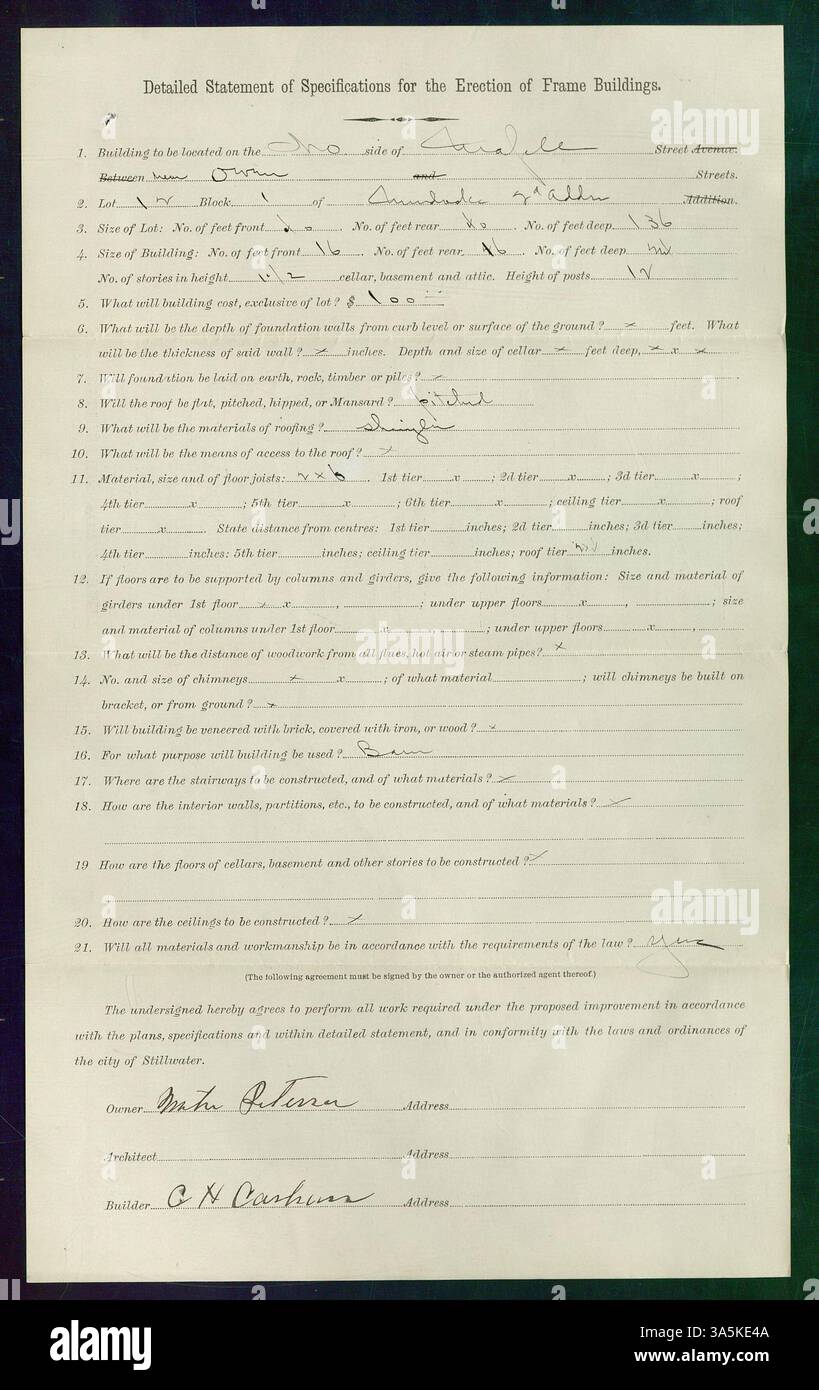 Detailed Statement of Specifications for the Erection of Frame Buildings.
1. Building to be located on the No side of Street Avenue.
Between near Owen and Streets.
2. Lot 12 Block 1 of 2d Addn Addition.
3. Size of Lot: No. of feet front No. of feet rear No. of feet deep 136
4. Size of Building: No. of feet front 16 No. of feet rear 16 No. of feet deep
No. of stories in height 1 1/2 cellar, basement and attic. Height of posts 12
5. What will building cost, exclusive of lot? $ 100
6. What will be the depth of foundation walls from curb level or surface of the ground? x feet. What
will be the thickness of said wall? x inches. Depth and size of cellar x feet deep, x x x
7. Will foundation be laid on earth, rock, timber or piles? x
8. Will the roof be flat, pitched, hipped, or Mansard? pitched
9. What will be the materials of roofing? shingles
10. What will be the means of access to the roof? x
11. Material, size and of floor joists: 2 x 6. 1st tier x ; 2d tier x ; 3d tier x ;
4th tier x ; 5th tier x ; 6th tier x ; ceiling tier x ; roof
tier x . State distance from centres: 1st tier inches; 2d tier inches; 3d tier inches;
4th tier inches: 5th tier inches; ceiling tier inches; roof tier inches.
12. If floors are to be supported by columns and girders, give the following information: Size and material of
girders under 1st floor x x , ; under upper floors x , ; size
and material of columns under 1st floor x ; under upper floors x ,
13. What will be the distance of woodwork from all flues, hot air or steam pipes? x
14. No. and size of chimneys x x ; of what material ; will chimneys be built on
bracket, or from ground? x
15. Will building be veneered with brick, covered with iron, or wood? x
16. For what purpose will building be used? Barn
17. Where are the stairways to be constructed, and of what materials? x
18. How are the interior walls, partitions, etc., to be constructed, and of what materials? x
19 How are the floors of cellars, basement and other stories to be constructed? x
20. How are the ceilings to be constructed? x
21. Will all materials and workmanship be in accordance with the requirements of the law? yes
(The following agreement must be signed by the owner or the authorized agent thereof.)
The undersigned hereby agrees to perform all work required under the proposed improvement in accordance
with the plans, specifications and within detailed statement, and in conformity with the laws and ordinances of
the city of Stillwater.
Owner Peterson Address
Architect Address
Builder C H Address
alamy
Image ID: 3A5KE4A
www.alamy.com